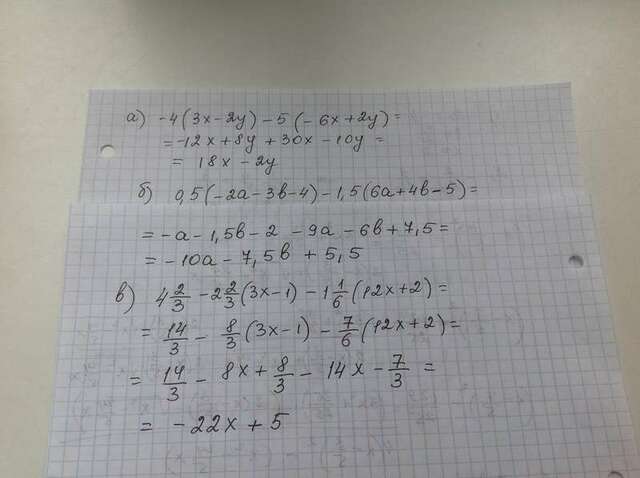 а) -4(3x-2y)-5(-6x+2y)=
=-12x+8y+30x-10y=
= 18x-2y
б) 0,5(-2a-3b-4)-1,5(6a+4b-5)=
=-a-1,5b-2-9a-6b+7,5=
=-10a-7,5b+5,5
в) 4 2/3 - 2 2/3 (3x-1) - 1 1/6 (12x+2)=
= 14/3 - 8/3 (3x-1) - 7/6 (12x+2)=
= 14/3 - 8x + 8/3 - 14x - 7/3 =
= -22x+5